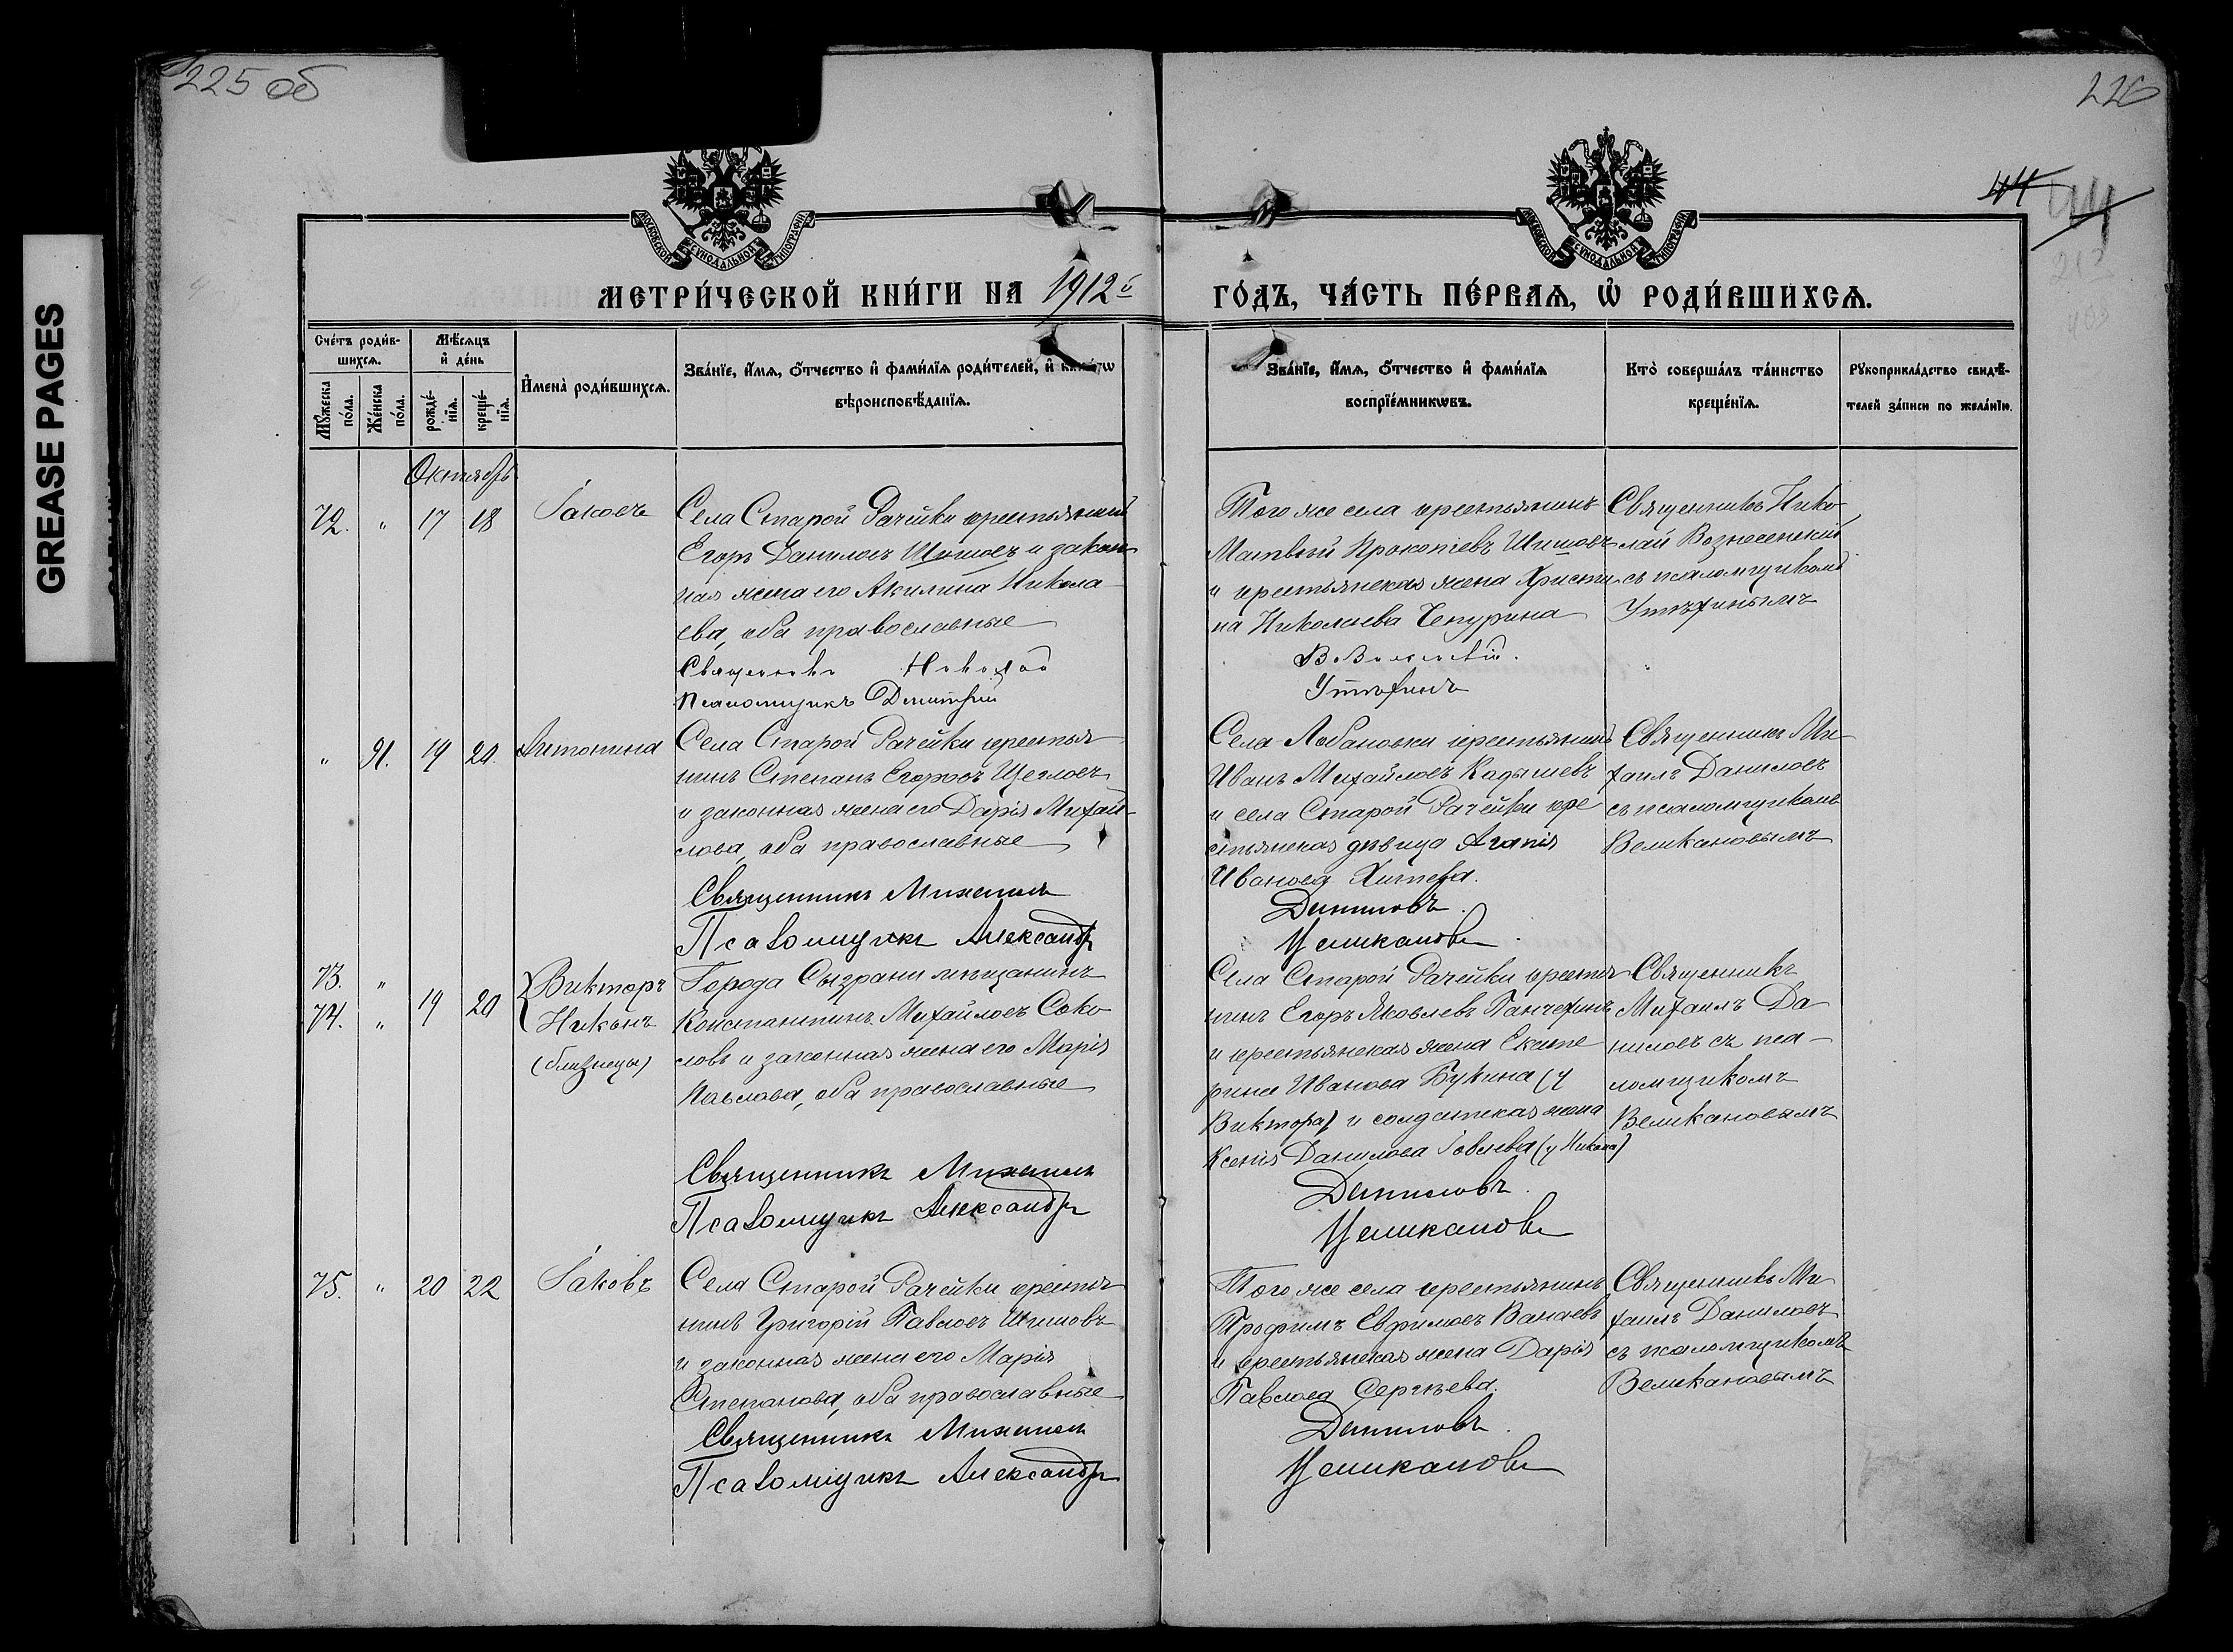 225 об
226
GREASE PAGES
44
213
403
МОСКОВСКОЙ СУНОДАЛЬНОЙ ТИПОГРАФІИ
МОСКОВСКОЙ СУНОДАЛЬНОЙ ТИПОГРАФІИ
МЕТРИ́ЧЕСКОЙ КНИ́ГИ НА 1912й
ГО́ДЪ, ЧА́СТЬ ПЕ́РВАѦ, Ѡ҆ РОДИ́ВШИХСѦ.
Сче́тъ роди́в-
шихсѧ.
Мꙋ́жеска по́ла.
Же́нска по́ла.
Мѣ́сѧцъ
и҆ де́нь
рожде́-
нїѧ.
креще́-
нїѧ.
И҆мена̀ роди́вшихсѧ.
Зва́нїе, и҆́мѧ, ѻ҆́тчество и҆ фами́лїѧ роди́телей, и҆ како́гѡ
вѣроисповѣ́данїѧ.
Зва́нїе, и҆́мѧ, ѻ҆́тчество и҆ фами́лїѧ
воспрїе́мникѡвъ.
Кто̀ соверша́лъ та́инство
креще́нїѧ.
Рꙋкоприкла́дство свидѣ́-
телей за́писи по жела́нїю.
Октябрь
72. " 17 18 Іаковъ
Села Старой Рачейки крестьянинъ
Егоръ Даниловъ Шишовъ и закон-
ная жена его Акилина Никола-
ева, оба православные
Священникъ Николай
Псаломщикъ Димитрій
Того же села крестьянинъ
Матвѣй Прокопіевъ Шишовъ
и крестьянская жена Христи-
на Николаева Чепурина
Вознесенскій.
Утѣхинъ
Священникъ Нико-
лай Вознесенскій
съ псаломщикомъ
Утѣхинымъ
" 91. 19 20. Антонина
Села Старой Рачейки крестья-
нинъ Степанъ Егоровъ Щегловъ
и законная жена его Дарія Михай-
лова, оба православные
Священникъ Михаилъ
Псаломщикъ Александръ
Села Лобановки крестьянинъ
Иванъ Михайловъ Кадышевъ
и села Старой Рачейки кре-
стьянская дѣвица Агапія
Иванова
Даниловъ.
Великановъ.
Священникъ Ми-
хаилъ Даниловъ
съ псаломщикомъ
Великановымъ
73. "
74. " 19 20
Викторъ
Никонъ
(близнецы)
Города Сызрани мѣщанинъ
Константинъ Михайловъ Соко-
ловъ и законная жена его Марія
Павлова, оба православные
Священникъ Михаилъ
Псаломщикъ Александръ
Села Старой Рачейки крестья-
нинъ Егоръ Яковлевъ Панчехинъ
и крестьянская жена Екате-
рина Иванова Букина (у
Виктора) и солдатская жена
Ксенія Данилова Іовлева (у Никона)
Даниловъ.
Великановъ
Священникъ
Михаилъ Да-
ниловъ съ пса-
ломщикомъ
Великановымъ
75. " 20 22 Іаковъ
Села Старой Рачейки крестья-
нинъ Григорій Павловъ Шишовъ
и законная жена его Марія
Степанова, оба православные
Священникъ Михаилъ
Псаломщикъ Александръ
Того же села крестьянинъ
Трофимъ Евфимовъ Ванаевъ
и крестьянская жена Дарія
Павлова Сергѣева.
Даниловъ.
Великановъ
Священникъ Ми-
хаилъ Даниловъ
съ псаломщикомъ
Великановымъ